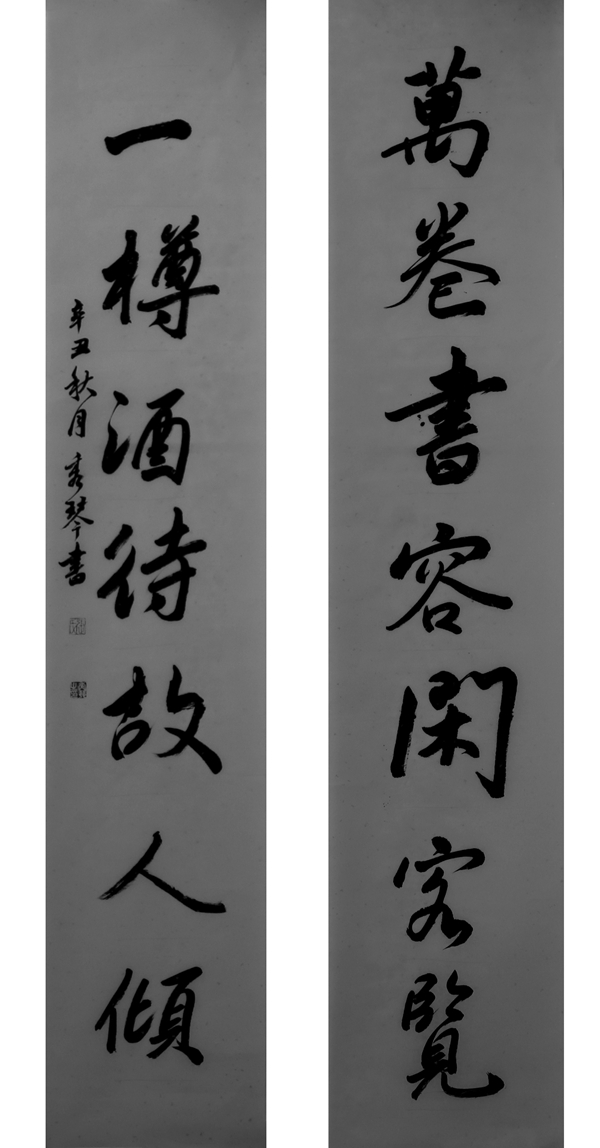 萬卷書容閑客覽
一樽酒待故人傾
辛丑秋月秀琴書